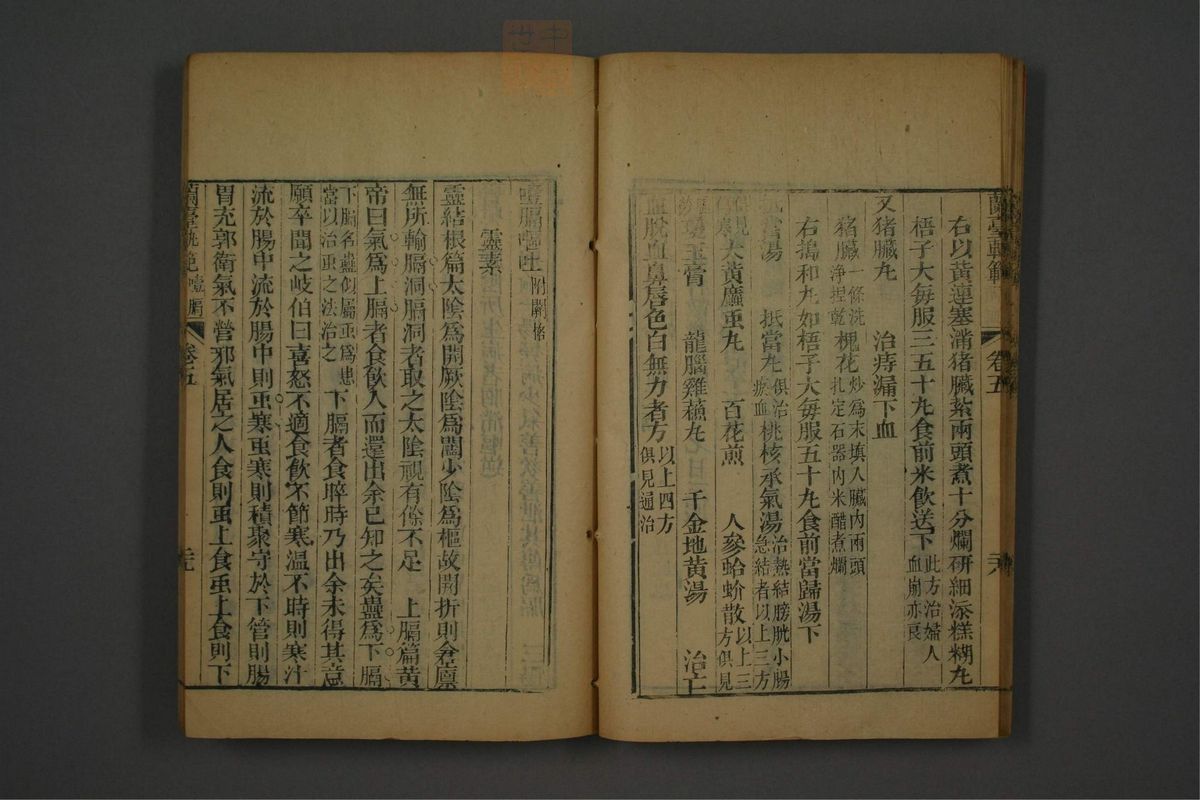 蘭臺軌範
卷五
右以黃連塞滿猪臟紮兩頭煮十分爛研細添糕糊丸
梧子大每服三五十丸食前米飲送下此方治婦人血崩亦良
又猪臟丸 治痔漏下血
猪臟一條洗淨捏乾槐花炒為末填入臟內兩頭扎定石器內米醋煮爛
右搗和丸如梧子大每服五十丸食前當歸湯下
抵當湯 抵當丸俱治瘀血桃核承氣湯治熱結膀胱小腸急結者以上三方
大黃䗪虫丸 百花煎 人參蛤蚧散以上三方俱見
膏 龍腦雞蘇丸 千金地黃湯 治上
血脫血鼻唇色白無力者方以上四方俱見通治
附關格
靈素
靈結根篇太陰為開厥陰為闔少陰為樞故開折則倉廩
無所輸膈洞膈洞者取之太陰視有餘不足 上膈篇黃
帝曰氣為上膈者食飲入而還出余已知之矣蟲為下膈
下膈名蟲似屬虫為患當以治虫之法治之下膈者食晬時乃出余未得其意
願卒聞之岐伯曰喜怒不適食飲不節寒溫不時則寒汁
流於腸中流於腸中則虫寒虫寒則積聚守於下管則腸
胃充郭衛氣不營邪氣居之人食則虫上食虫上食則下
卷五